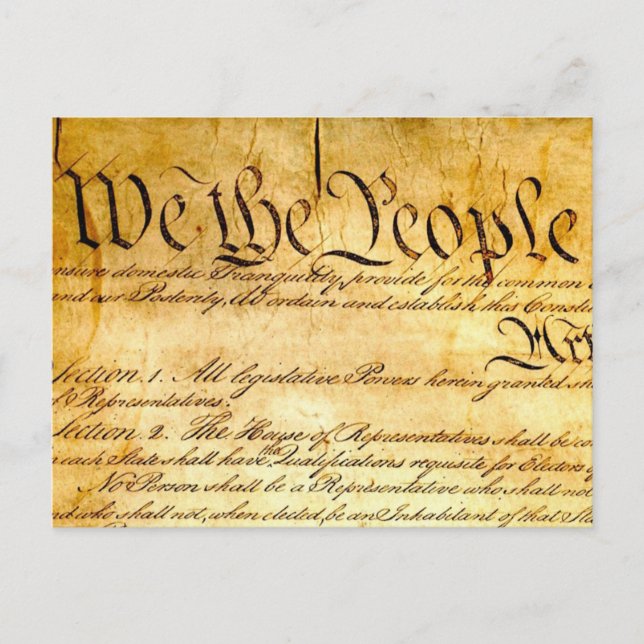 We the People
nsure domestic Tranquility, provide for the common
and our Posterity, do ordain and establish this Constitu
Arti
Section. 1. All legislative Powers herein granted sha
of Representatives.
Section. 2. The House of Representatives shall be co
n each State shall have the Qualifications requisite for Electors o
No Person shall be a Representative who shall not
nd who shall not, when elected, be an Inhabitant of that Sta